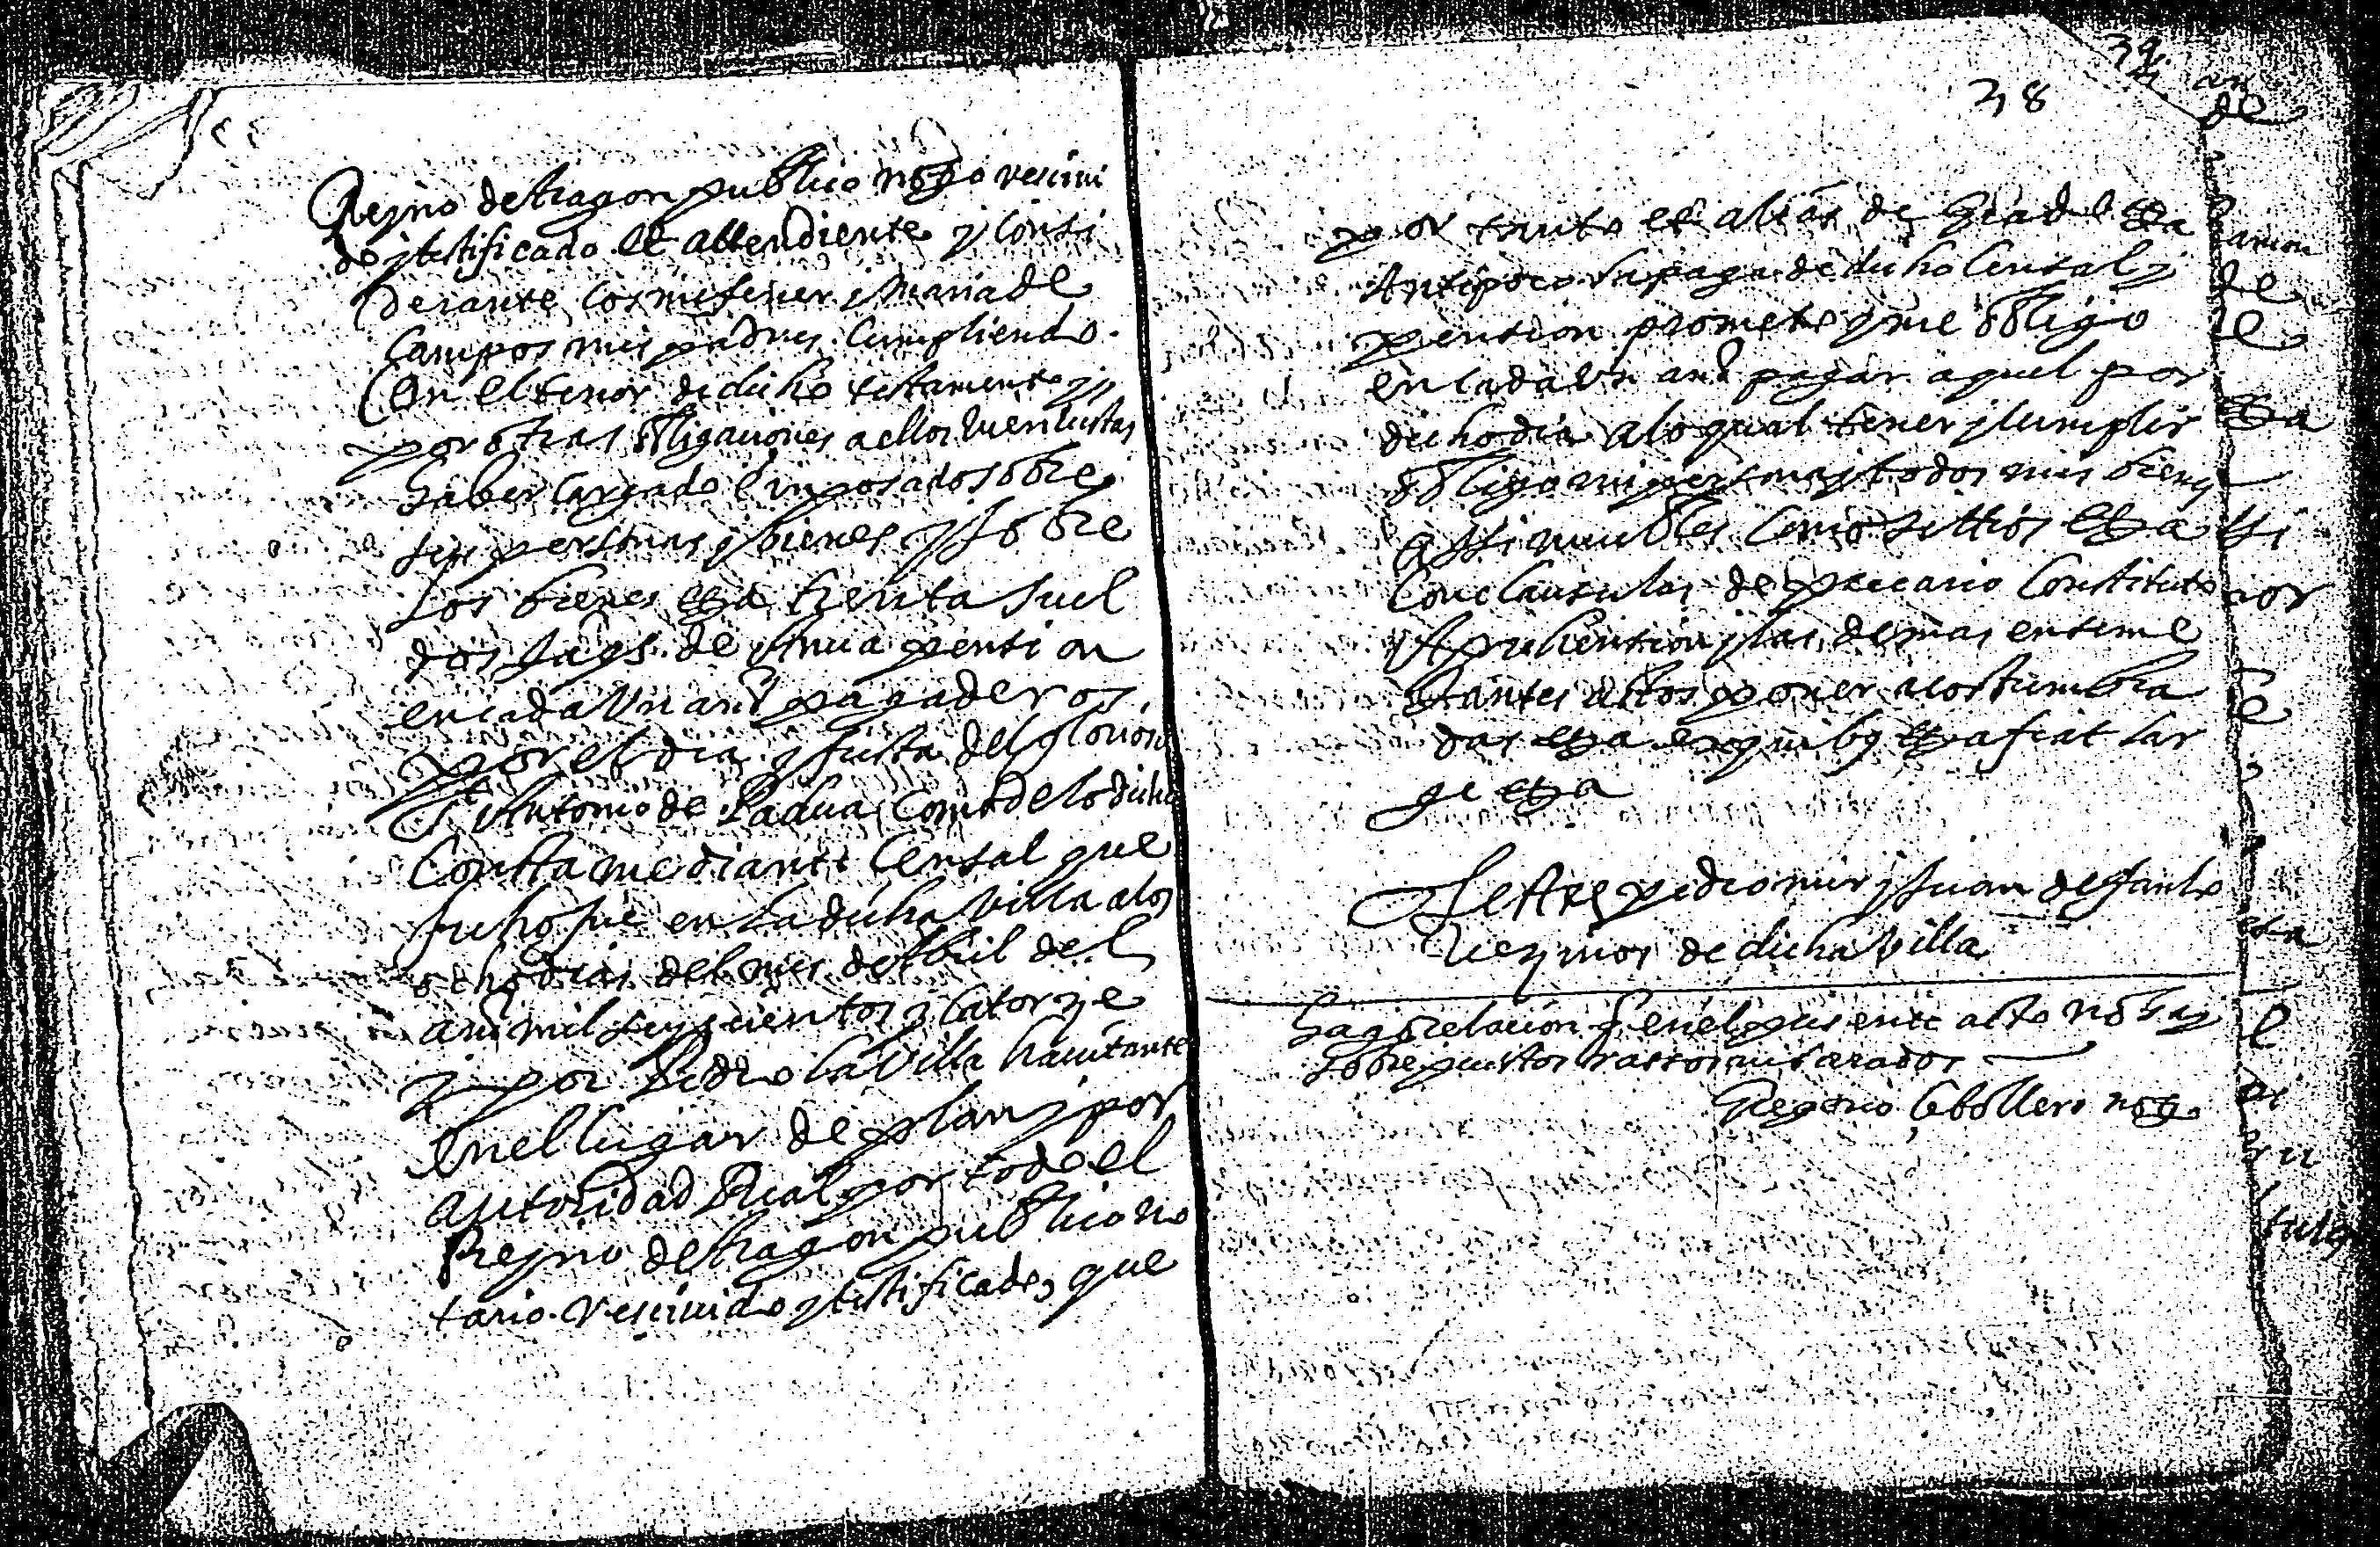 Reyno de Aragon publico noto vescivi
do y testificado et attendiente y consi
derante Cosme ferrer y Maria de
Campos mis padres cumpliendo
con el tenor de dicho testamento y
por otras obligaciones a ellos bien vistas
haber cargado e imposado sobre
sus personas y bienes y sobre
los bienes etca trenta suel
dos jaqs de annua pension
en cada un año pagaderos
por el dia y fiesta del glorioso
St Antonio de Padua como de lo dicho
consta mediante censal que
fecho fue en la dicha villa a los
ocho dias del mes de Abril del
año mil seyscientos y catorze
y por Pedro la Villa havitante
en el lugar de plan y por
autoridad Real por todo el
Reyno de Aragon publico no
tario rescivido y testificado, que
38
por tanto et alias de grado etca
Antipoco la paga de dicho censal y
pension prometo y me obligo
en cada un año pagar aquel por
dicho dia a lo qual tener y cumplir
obligo mi persona y todos mis bienes
assi muebles como sittios etca
con clausulas de precario constituto
Aprehension y las demas en seme
jantes actos poner acostumbra
das etca ex quibus etca fiat lar
ge etca
Testes pedro mir y Juan de Santo
vezinos de dicha villa
Hago relacion q en el presente acto no hay
sobrepuestos rassos ni barrados
Gregorio Cebollero noto